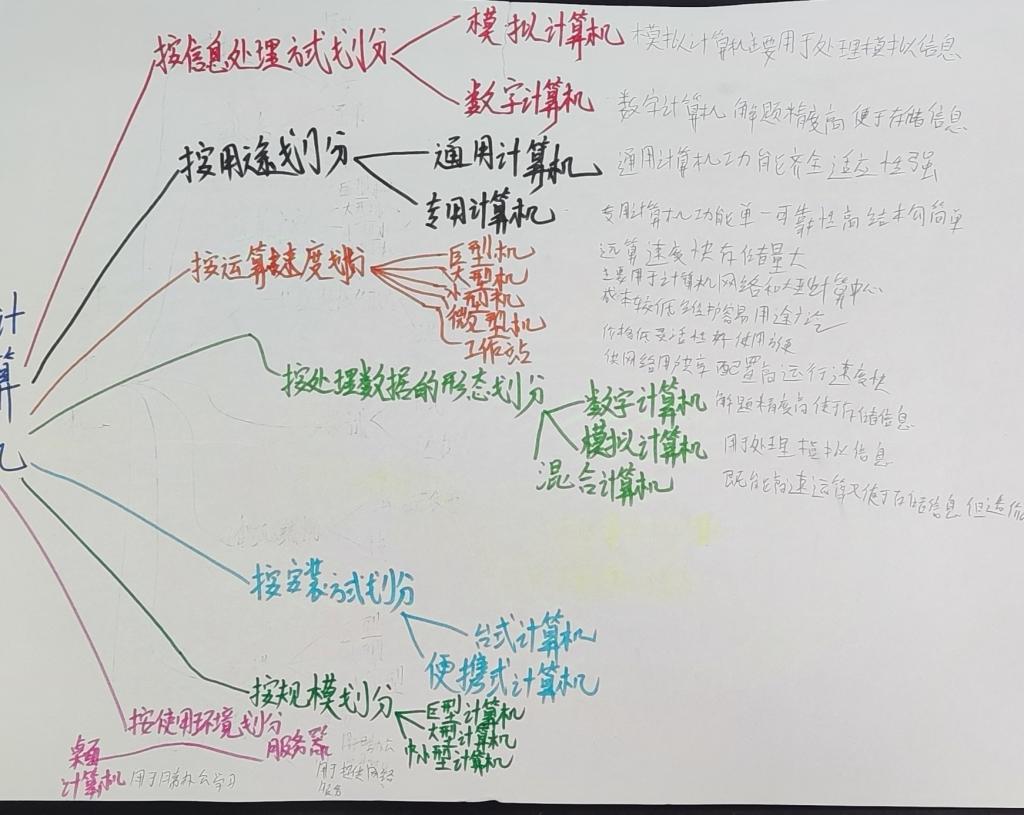 计
算
机
按信息处理方式划分
模拟计算机 模拟计算机主要用于处理模拟信息
数字计算机 数字计算机解题精度高便于存储信息
按用途划分
通用计算机 通用计算机功能齐全适应性强
专用计算机 专用计算机功能单一可靠性高结构简单
按运算速度划份
巨型机 运算速度快存储量大
大型机 主要用于计算机网络和大型计算中心
小型机 成本较低维护容易用途广泛
微型机 价格低灵活性好使用方便
工作站 供网络用 配置高运行速度快
按处理数据的形态划分
数字计算机 解题精度高便于存储信息
模拟计算机 用于处理模拟信息
混合计算机 既能高速运算又便于存储信息但造价
按安装方式划分
台式计算机
便携式计算机
按规模划分
巨型计算机
大型计算机
中小型计算机
按使用环境划分
桌面
计算机 用于日常办公学习
服务器
用于提供网络
服务